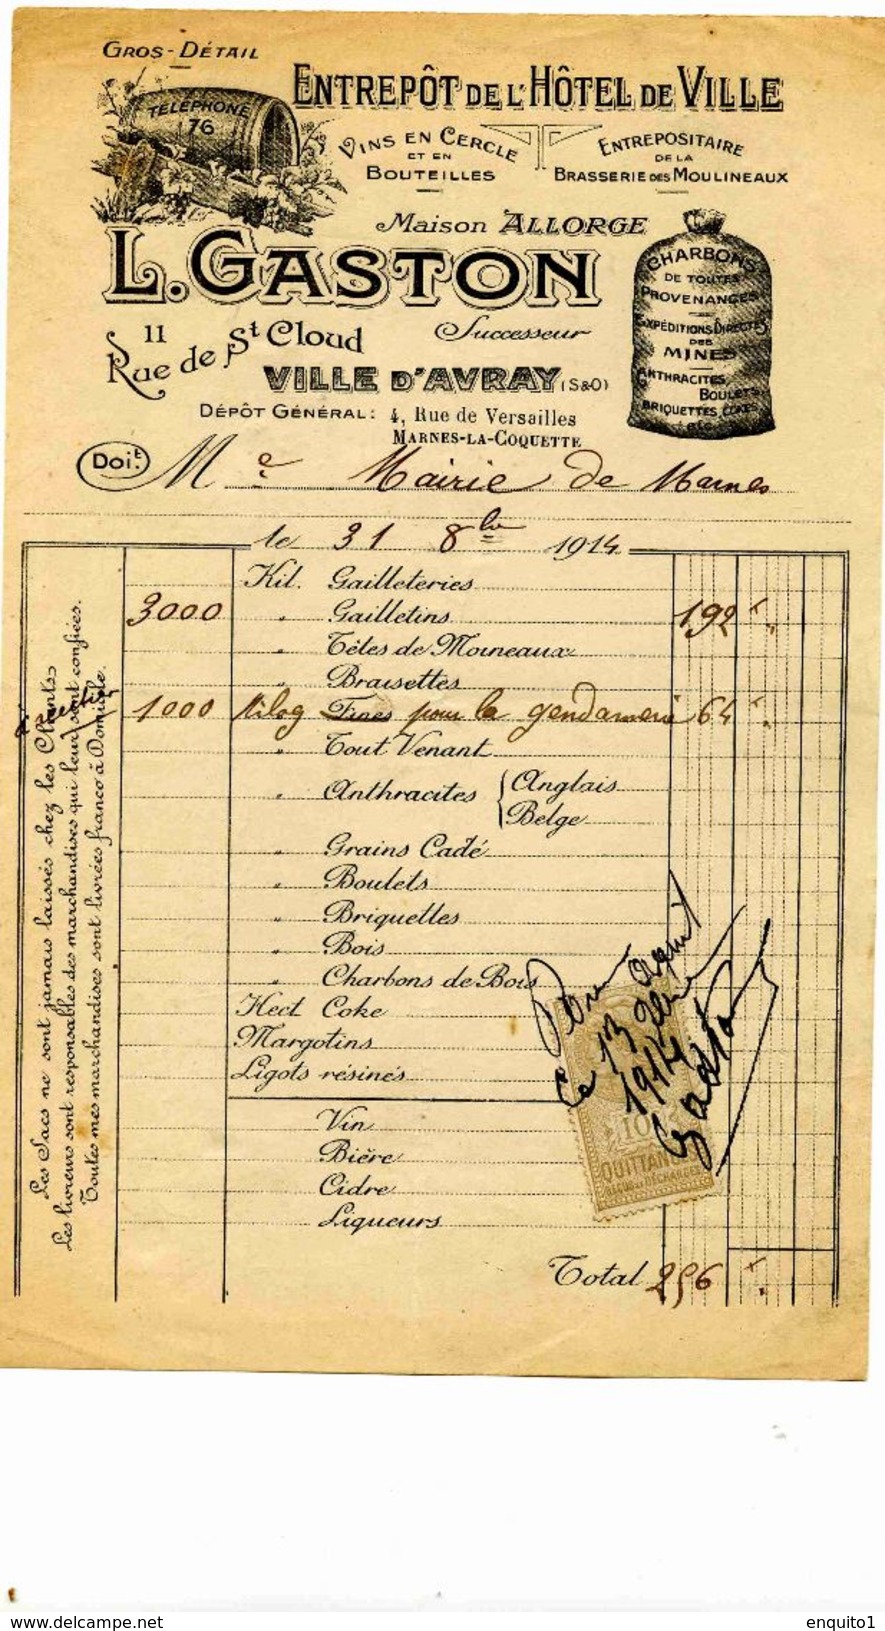 GROS - DÉTAIL
ENTREPÔT DE L'HÔTEL DE VILLE
TÉLÉPHONE
76
VINS EN CERCLE
ET EN
BOUTEILLES
ENTREPOSITAIRE
DE LA
BRASSERIE DES MOULINEAUX
Maison ALLORGE
L. GASTON
Successeur
11
Rue de St Cloud
VILLE D'AVRAY (S&O)
DÉPÔT GÉNÉRAL: 4, Rue de Versailles
MARNES-LA-COQUETTE
CHARBONS
DE TOUTES
PROVENANCES
EXPÉDITIONS DIRECTES
DES
MINES
ANTHRACITES
BOULETS
BRIQUETTES, COKES
etc.
Doit M e Mairie de Marnes
le 31 8bre 1914
Kil. Gailleteries
3000 " Gailletins 192 "
" Têtes de Moineaux
" Braisettes
1000 Kilog Fines pour la gendarmerie 64 "
" Tout Venant
" Anthracites { Anglais
Belge
" Grains Cadé
" Boulets
" Briquettes
" Bois
" Charbons de Bois
Hect Coke
Margotins
Ligots résinés
Vin
Bière
Cidre
Liqueurs
Total 256 "
Les Sacs ne sont jamais laissés chez les Clients
Les livreurs sont responsables des marchandises qui leur sont confiées.
Toutes mes marchandises sont livrées franco à Domicile.
Pour Acquit
Ce 13
1914
Gaston
10
QUITTANCES
REÇUS ET DÉCHARGES
www.delcampe.net
enquito1